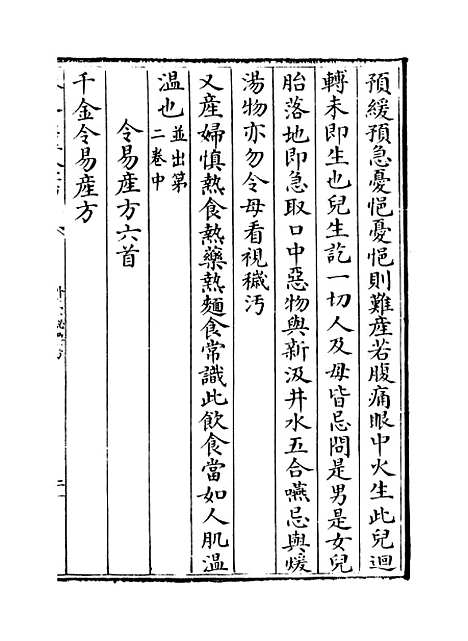 預緩預急憂悒憂悒則難産若腹痛眼中火生此兒迴
轉未即生也兒生訖一切人及母皆忌問是男是女兒
胎落地即急取口中惡物與新汲井水五合嚥忌與煖
湯物亦勿令母看視穢汚
又産婦慎熱食熱藥熱麵食常識此飲食當如人肌温
温也並出第二卷中
令易産方六首
千金令易産方